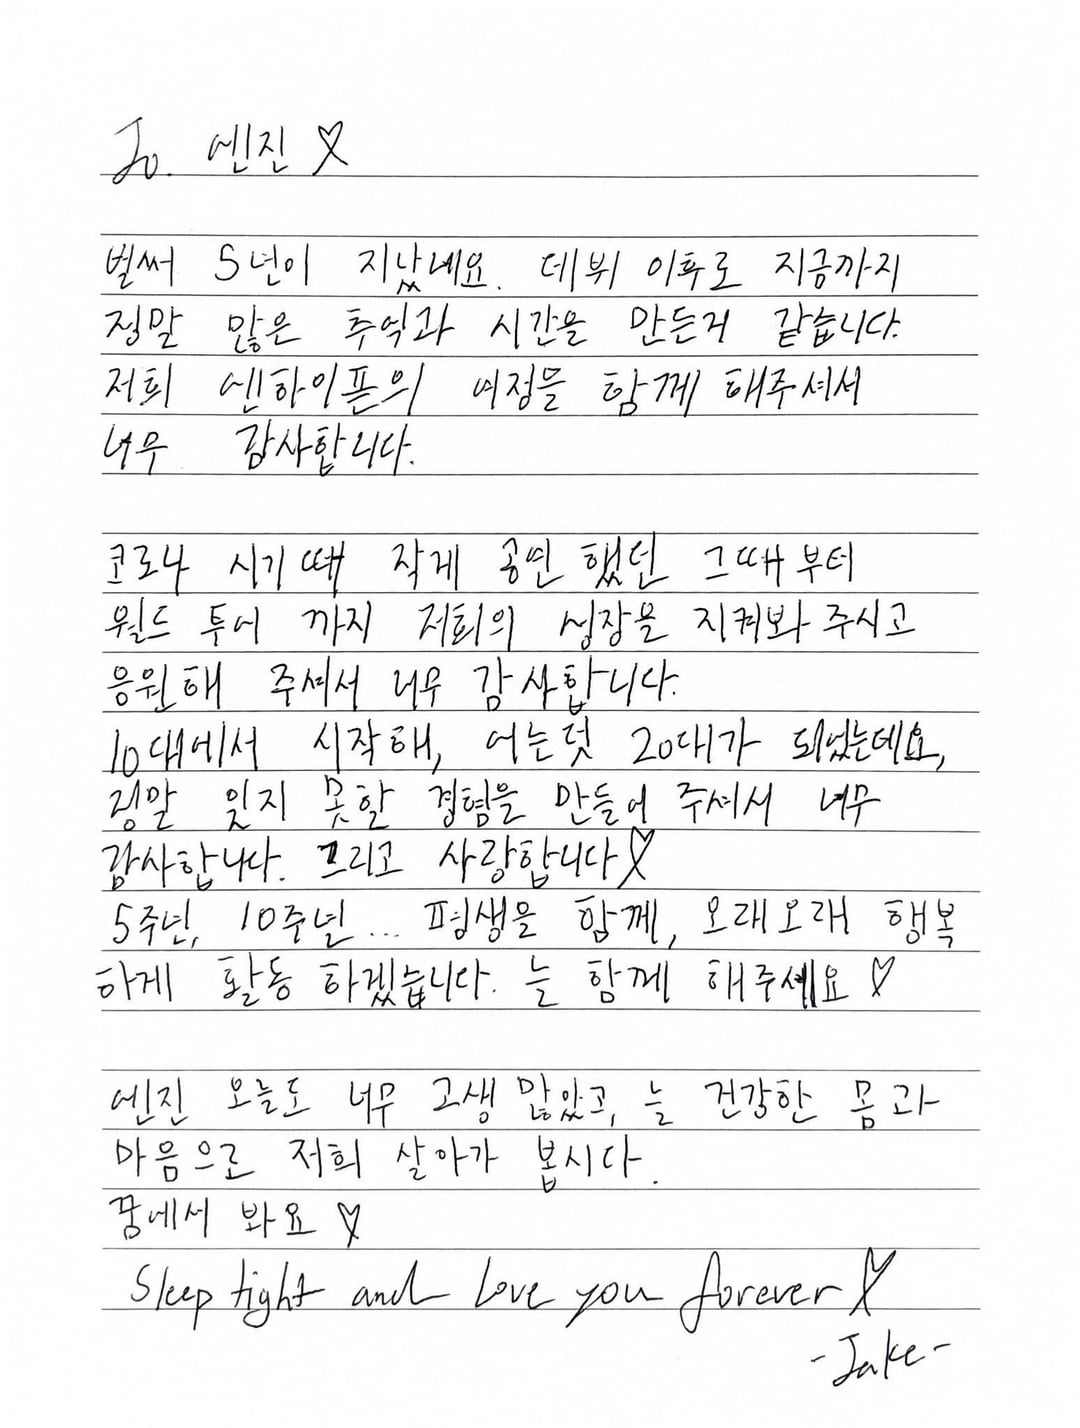 To. 엔진 ♡
벌써 5년이 지났네요. 데뷔 이후로 지금까지
정말 많은 추억과 시간을 만든거 같습니다.
저희 엔하이픈의 여정을 함께 해주셔서
너무 감사합니다.
코로나 시기때 작게 공연했던 그때부터
월드 투어 까지 저희의 성장을 지켜봐 주시고
응원해 주셔서 너무 감사합니다.
10대에서 시작해, 어느덧 20대가 되었는데요,
정말 잊지 못할 경험을 만들어 주셔서 너무
감사합니다. 그리고 사랑합니다♡
5주년, 10주년... 평생을 함께, 오래오래 행복
하게 활동 하겠습니다. 늘 함께 해주세요 ♡
엔진 오늘도 너무 고생 많았고, 늘 건강한 몸과
마음으로 저희 살아가 봅시다.
꿈에서 봐요 ♡
Sleep tight and Love you forever♡
-Jake-